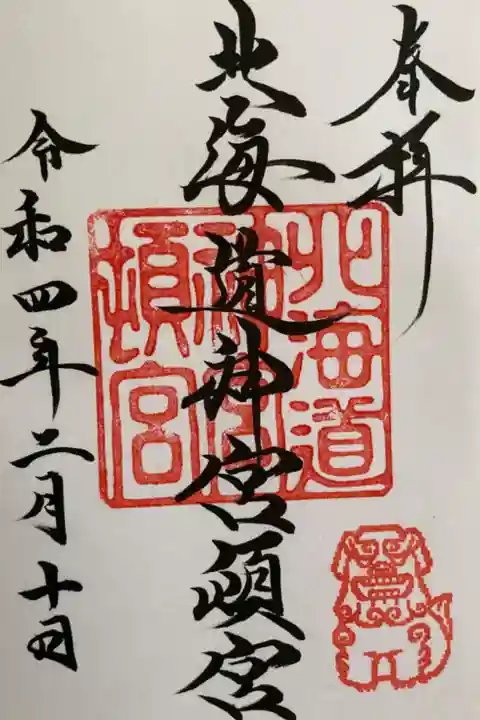 奉拝
北海道神宮頓宮
令和四年二月十日
北海道
神宮
頓宮